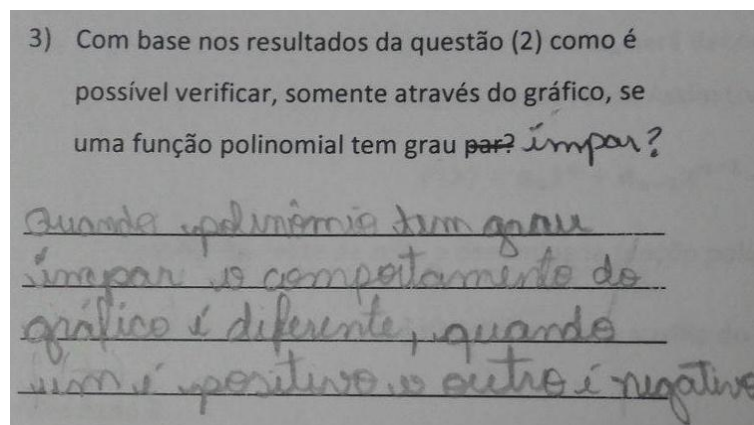 3) Com base nos resultados da questão (2) como é
possível verificar, somente através do gráfico, se
uma função polinomial tem grau par? ímpar?
Quando polinômio tem grau
ímpar o comportamento do
gráfico é diferente, quando
um é positivo o outro é negativo